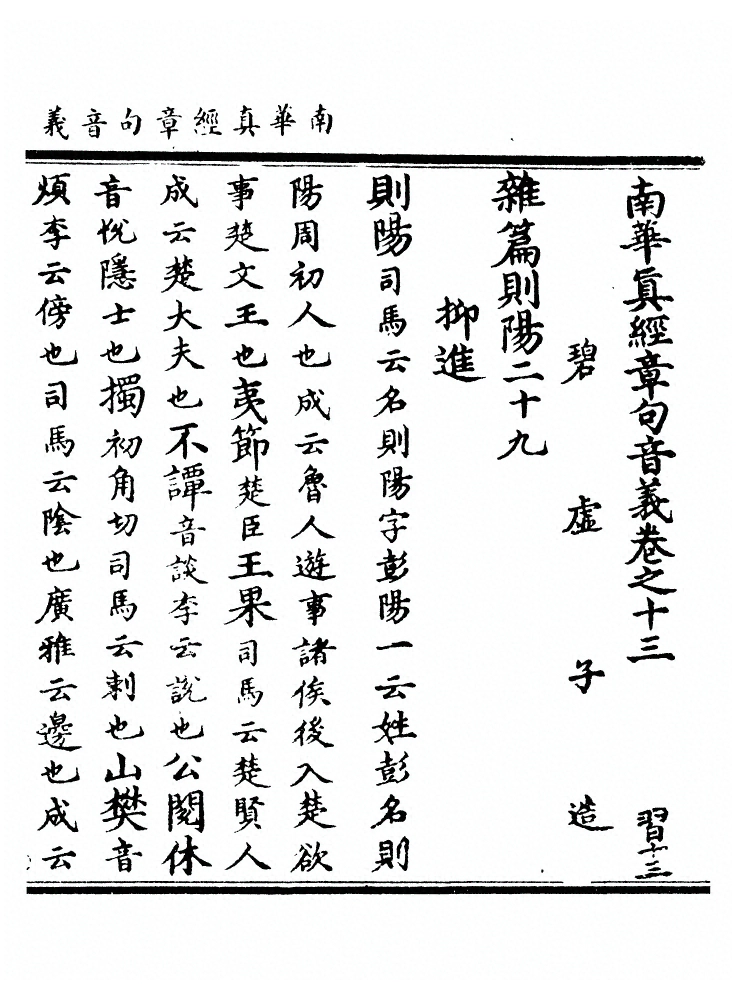 南華真經章句音義
南華眞經章句音義卷之十三 習十三
碧虛子造
雜篇則陽二十九
抑進
則陽司馬云名則陽字彭陽一云姓彭名則
陽周初人也成云魯人遊事諸侯後入楚欲
事楚文王也夷節楚臣王果司馬云楚賢人
成云楚大夫也不譚音談李云說也公閱休
音悅隱士也擉初角切司馬云刺也山樊音
煩李云傍也司馬云陰也廣雅云邊也成云